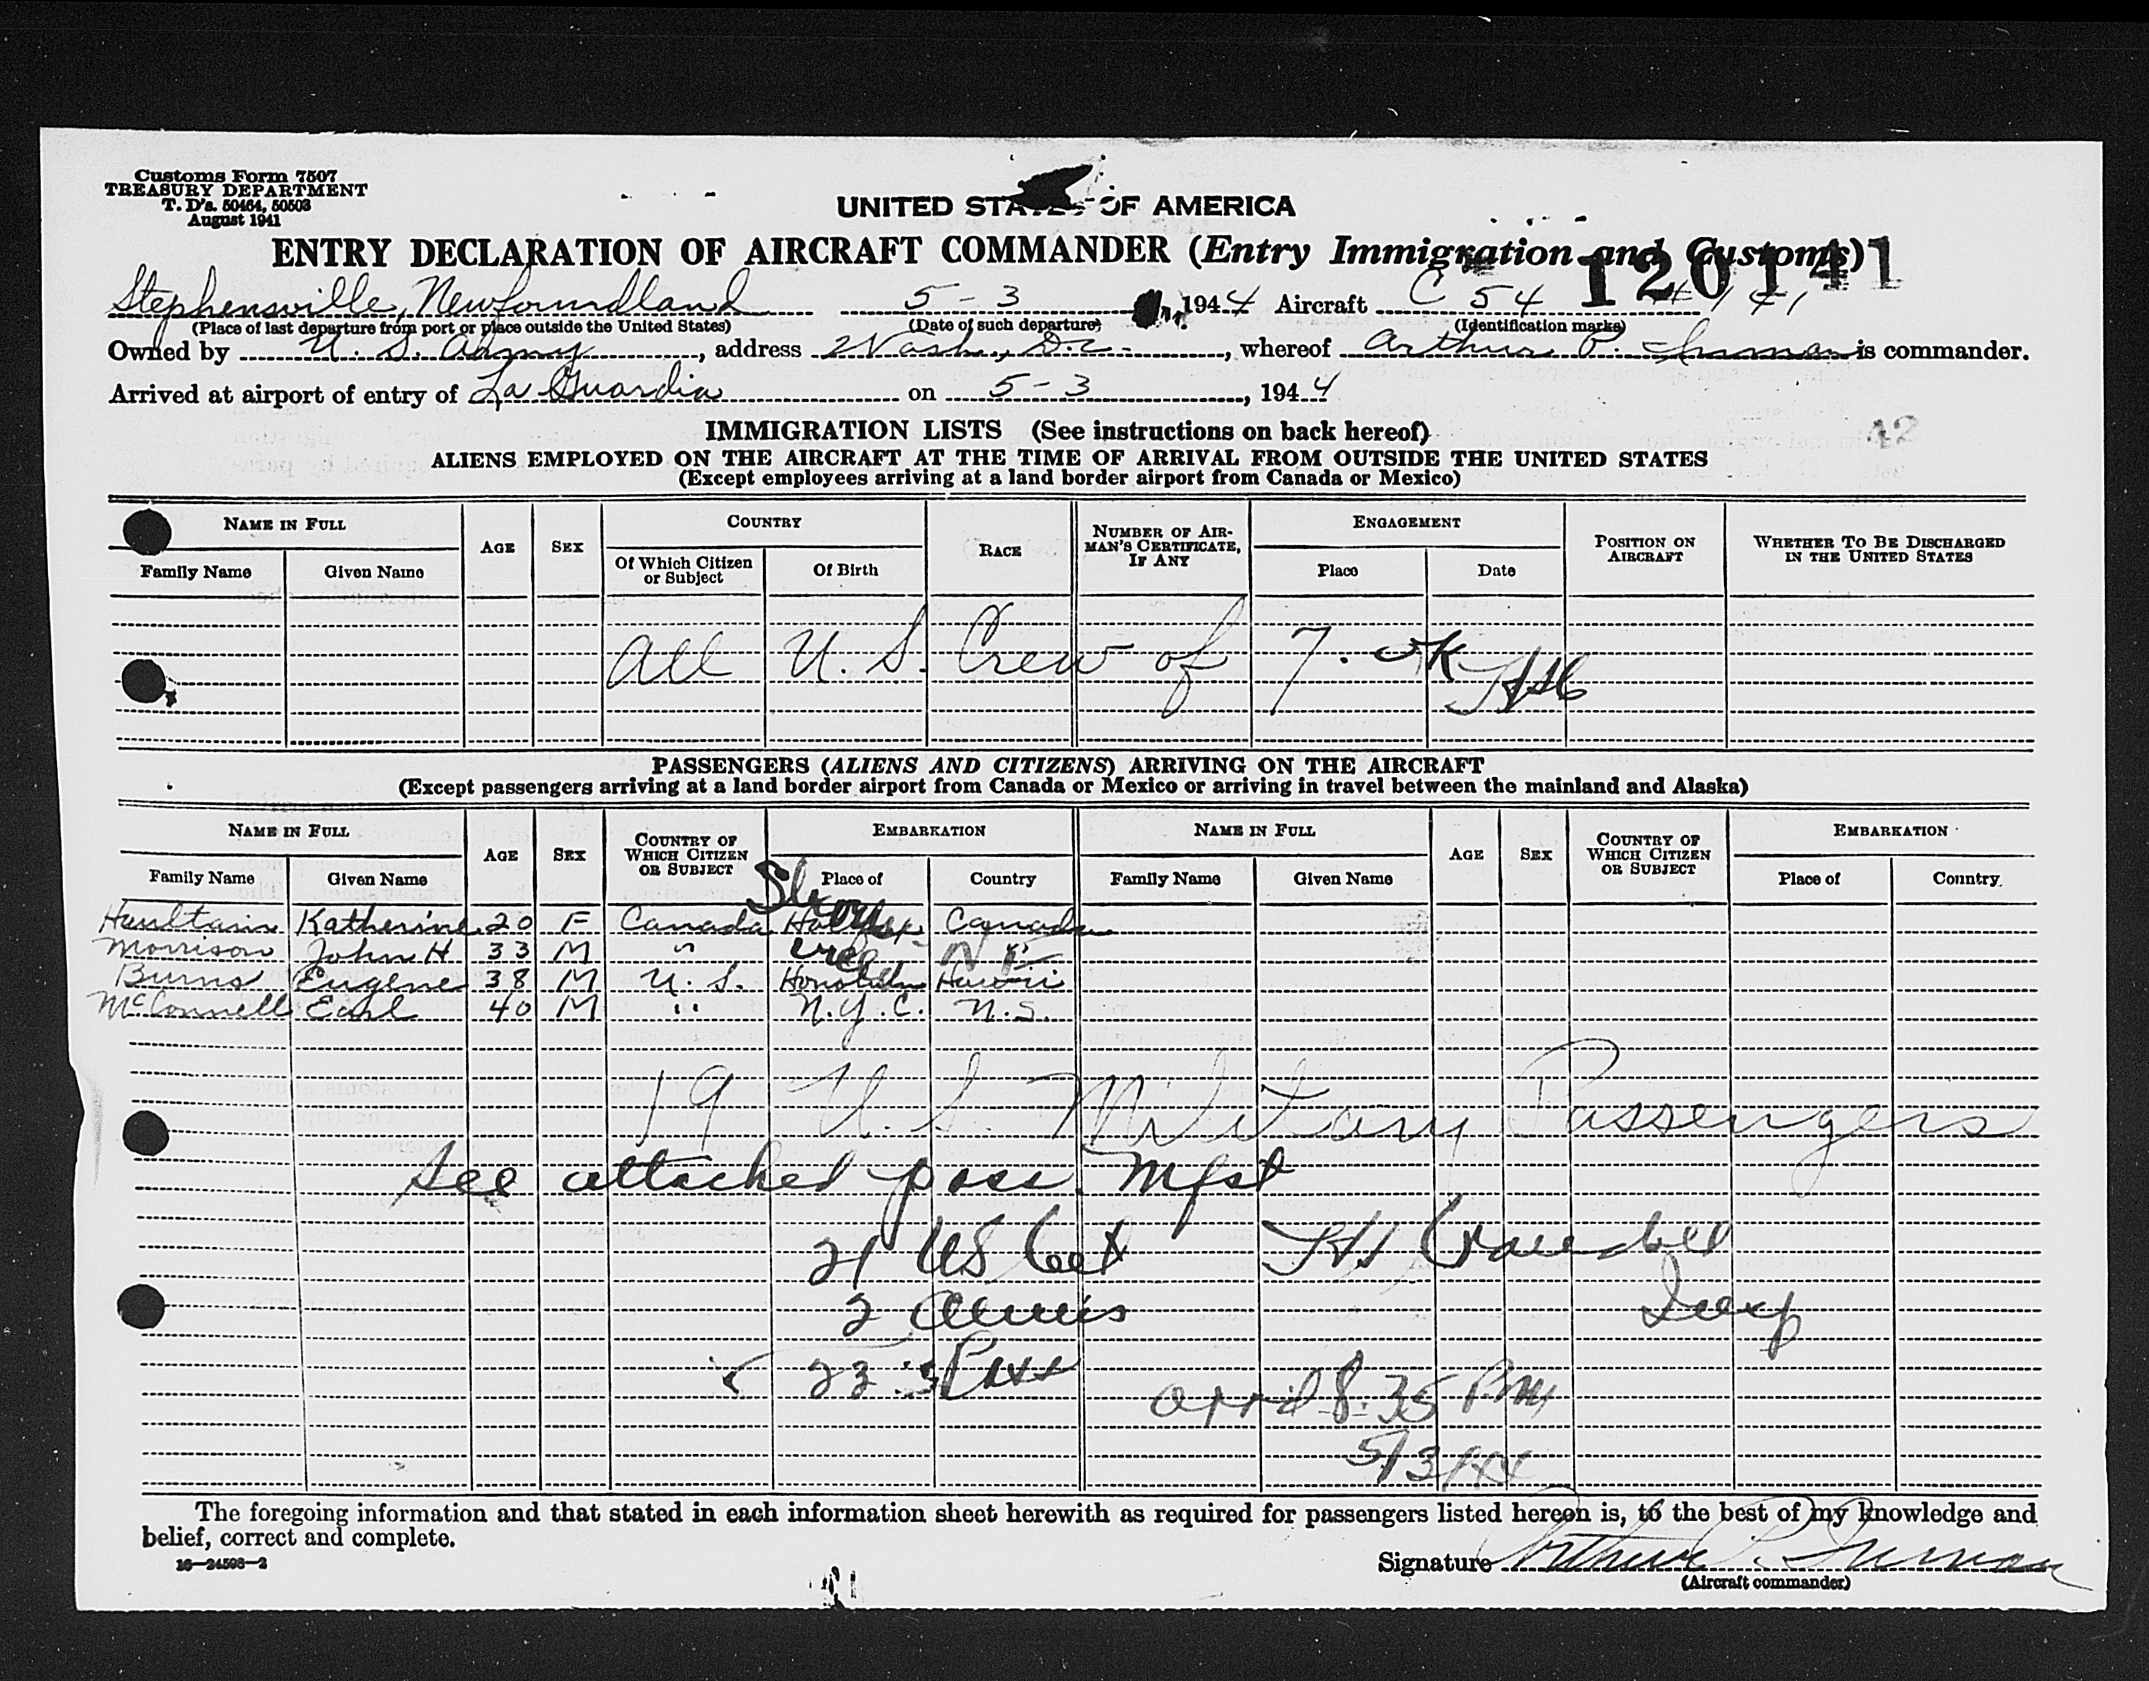 Customs Form 7507
TREASURY DEPARTMENT
T. D's. 50464, 50503
August 1941
UNITED STATES OF AMERICA
ENTRY DECLARATION OF AIRCRAFT COMMANDER (Entry Immigration and Customs)
120141
Stephensville, Newfoundland 5-3 1944 Aircraft C 54 # 141
(Place of last departure from port or place outside the United States) (Date of such departure) (Identification marks)
Owned by U. S. Army, address Wash., D.C., whereof Arthur P. Inman is commander.
Arrived at airport of entry of La Guardia on 5-3, 1944
42
IMMIGRATION LISTS (See instructions on back hereof)
ALIENS EMPLOYED ON THE AIRCRAFT AT THE TIME OF ARRIVAL FROM OUTSIDE THE UNITED STATES
(Except employees arriving at a land border airport from Canada or Mexico)
NAME IN FULL AGE SEX COUNTRY RACE NUMBER OF AIRMAN'S CERTIFICATE, IF ANY ENGAGEMENT POSITION ON AIRCRAFT WHETHER TO BE DISCHARGED IN THE UNITED STATES
Family Name Given Name Of Which Citizen or Subject Of Birth Place Date
All U. S. Crew of 7. OK
PASSENGERS (ALIENS AND CITIZENS) ARRIVING ON THE AIRCRAFT
(Except passengers arriving at a land border airport from Canada or Mexico or arriving in travel between the mainland and Alaska)
NAME IN FULL AGE SEX COUNTRY OF WHICH CITIZEN OR SUBJECT EMBARKATION NAME IN FULL AGE SEX COUNTRY OF WHICH CITIZEN OR SUBJECT EMBARKATION
Family Name Given Name Place of Country Family Name Given Name Place of Country
Haultain Katherine 20 F Canada Canada
Morrison John H 33 M "
Burns Eugene 38 M U. S. Honolulu Hawaii
McConnell Earl 40 M " N.Y.C. U.S.
19 U. S. Military Passengers
See attached pass. Mfst
21 US Cet
2 Aliens Insp
23 Pass
arr'd 8:35 PM
5/3/44
The foregoing information and that stated in each information sheet herewith as required for passengers listed hereon is, to the best of my knowledge and
belief, correct and complete.
16—24598-2
Signature Arthur P. Inman
(Aircraft commander)